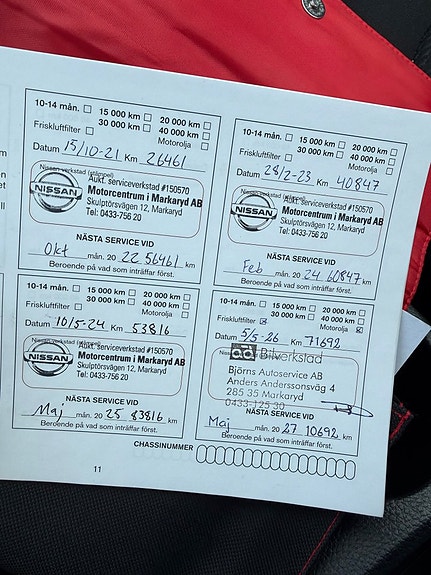 10-14 mån. 15 000 km 20 000 km
30 000 km 40 000 km
Friskluftfilter Motorolja
Datum 15/10-21 Km 26461
Nissan verkstad (stämpel)
Aukt. serviceverkstad #150570
NISSAN Motorcentrum i Markaryd AB
Skulptörsvägen 12, Markaryd
Tel: 0433-756 20
NÄSTA SERVICE VID
Okt mån. 20 22 56461 km
Beroende på vad som inträffar först.
10-14 mån. 15 000 km 20 000 km
30 000 km 40 000 km
Friskluftfilter Motorolja
Datum 28/2-23 Km 40847
Nissan verkstad (stämpel)
Aukt. serviceverkstad #150570
NISSAN Motorcentrum i Markaryd AB
Skulptörsvägen 12, Markaryd
Tel: 0433-756 20
NÄSTA SERVICE VID
Feb mån. 20 24 60847 km
Beroende på vad som inträffar först.
10-14 mån. 15 000 km 20 000 km
30 000 km 40 000 km
Friskluftfilter Motorolja
Datum 10/5-24 Km 53816
Aukt. serviceverkstad #150570
NISSAN Motorcentrum i Markaryd AB
Skulptörsvägen 12, Markaryd
Tel: 0433-756 20
NÄSTA SERVICE VID
Maj mån. 20 25 83816 km
Beroende på vad som inträffar först.
10-14 mån. 15 000 km 20 000 km
30 000 km 40 000 km
Friskluftfilter Motorolja
Datum 5/5-26 Km 71692
ad Bilverkstad
Björns Autoservice AB
Anders Anderssonsväg 4
285 35 Markaryd
0433-125 30
NÄSTA SERVICE VID
Maj mån. 20 27 10692 km
Beroende på vad som inträffar först.
CHASSINUMMER
11